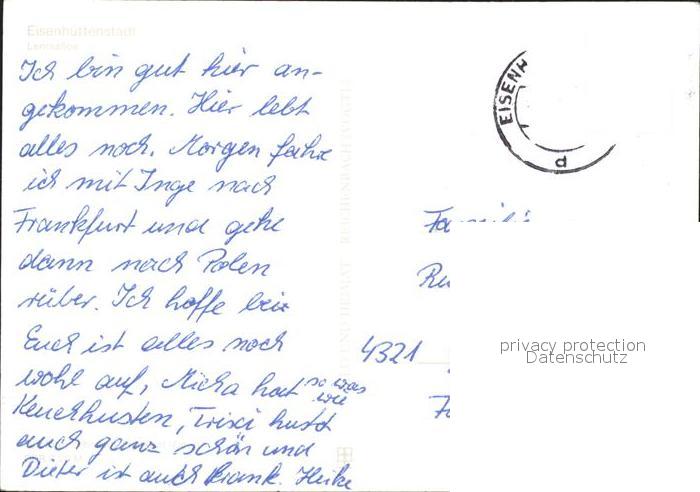 Eisenhüttenstadt
Leninallee
Ich bin gut hier an-
gekommen. Hier lebt
alles noch. Morgen fahre
ich mit Inge nach
Frankfurt und gehe
dann nach Polen
rüber. Ich hoffe bei
Euch ist alles noch
wohl auf, Micha hat so was wie
Keuchhusten, Trixi hust
auch ganz schön und
Dieter ist auch krank. Heike
EISENH
d
4321
privacy protection
Datenschutz